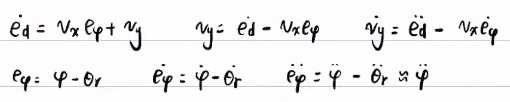 ėd = vx eφ + vy    vy = ėd - vx eφ    v̇y = ëd - vx ėφ
eφ = φ - θr    ėφ = φ̇ - θ̇r    ëφ = φ̈ - θ̈r ≈ φ̈